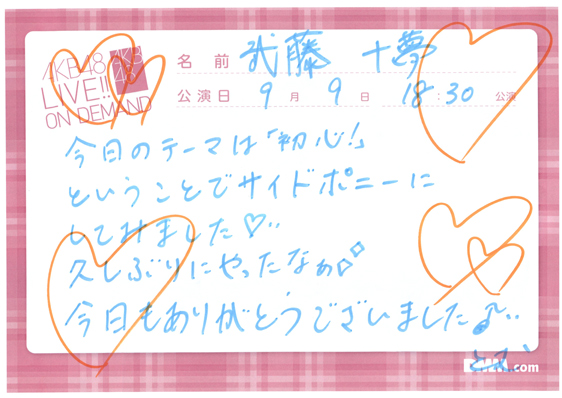 AKB48
LIVE!!
ON DEMAND
AKB
48
名前 武藤 十夢
公演日 9月9日 18:30 公演
今日のテーマは「初心!」
ということでサイドポニーに
してみました♡
久しぶりにやったなぁ
今日もありがとうございました♪
とむ
.com